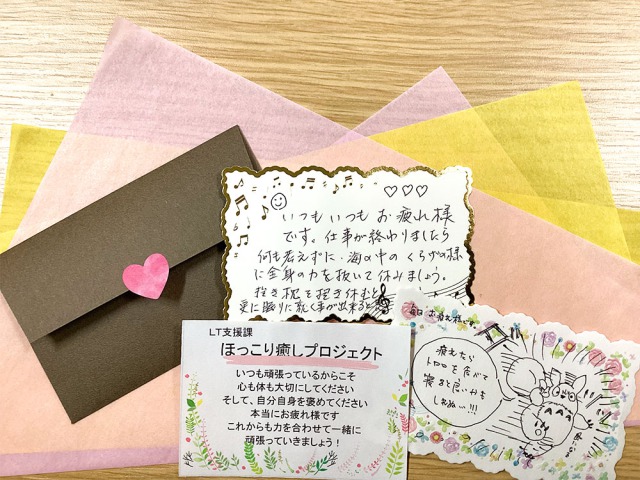 いつもいつもお疲れ様
です。仕事が終わりましたら
何も考えずに・海の中のくらげの様
に全身の力を抜いて休みましょう。
抱き枕を抱き休むと
更に眠りに就く事が出来ると
LT支援課
ほっこり癒しプロジェクト
いつも頑張っているからこそ
心も体も大切にしてください
そして、自分自身を褒めてください
本当にお疲れ様です
これからも力を合わせて一緒に
頑張っていきましょう！
毎日お疲れ様です。
疲れたら
トロロを食べて
寝ると良いかも
しれぬい!!!